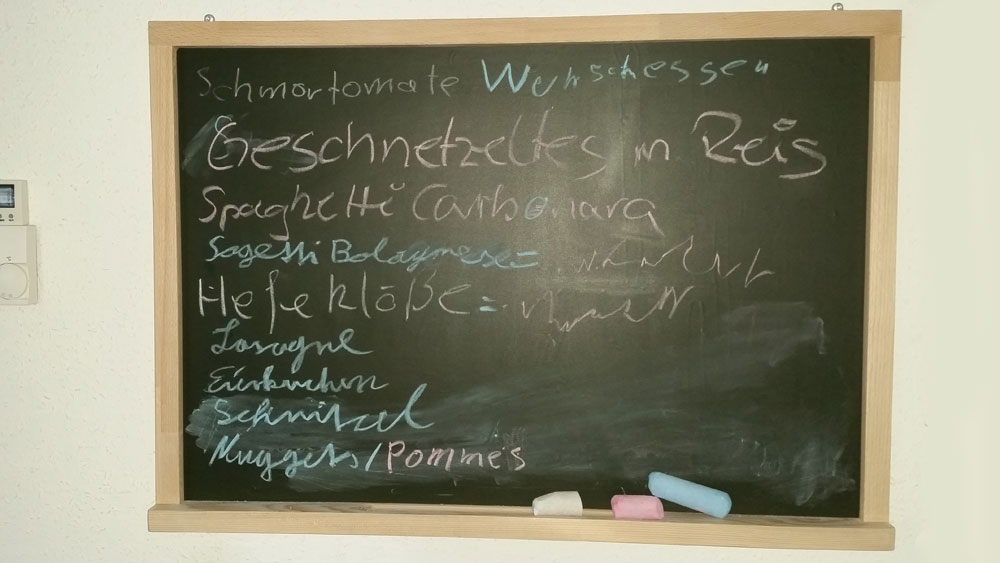 Schmortomate Wunschessen
Geschnetzeltes m Reis
Spaghetti Carbonara
Sagetti Bolaymese=
Hefeklöße =
Lasagne
Eierkuchen
Schnitzel
Nuggets/Pommes